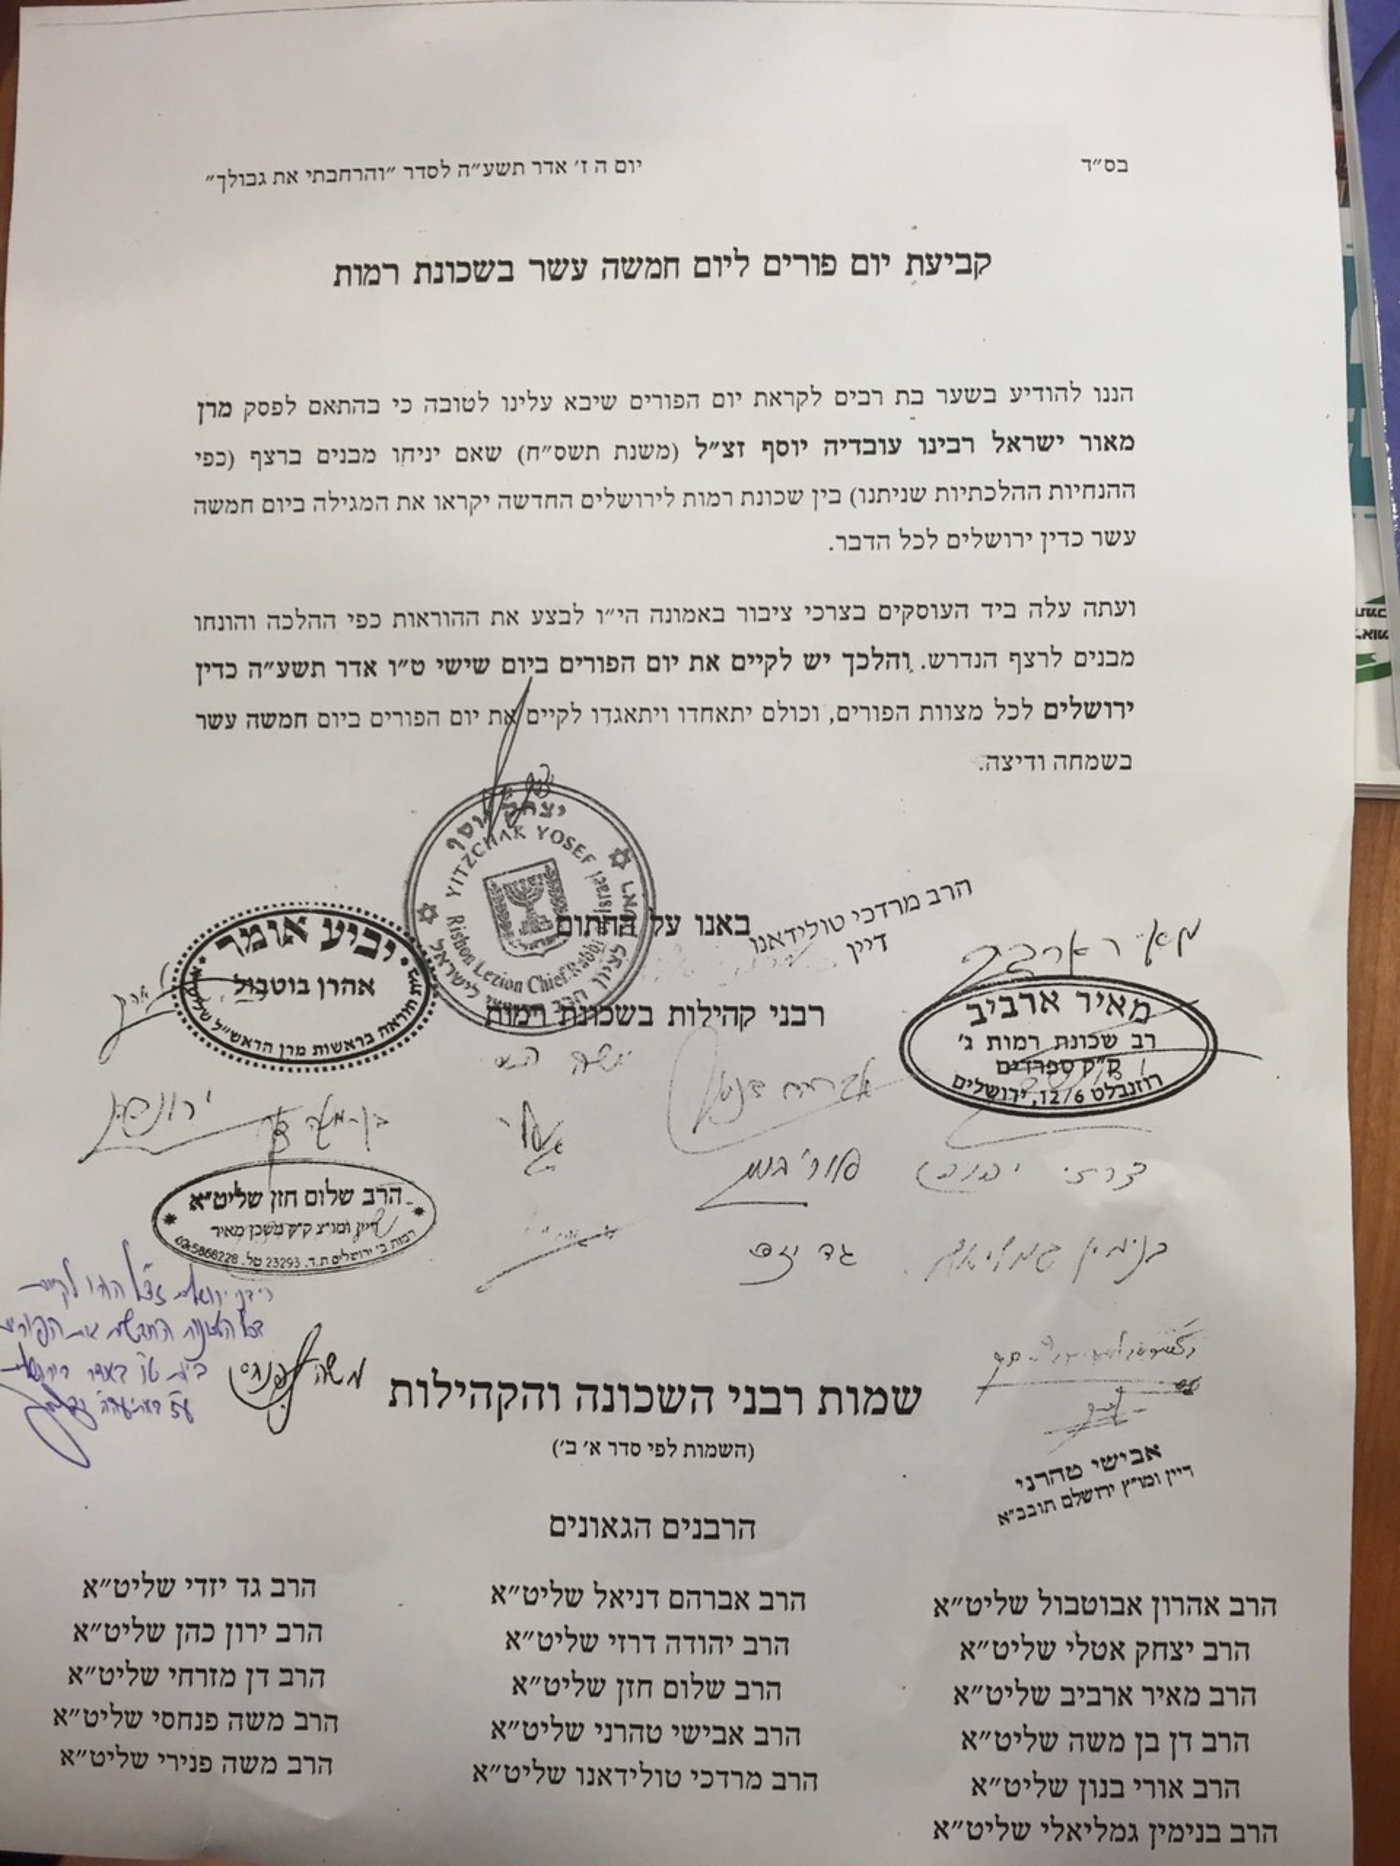 בס״ד
יום ה ז׳ אדר תשע״ה לסדר ״והרחבתי את גבולך״
קביעת יום פורים ליום חמשה עשר בשכונת רמות
הננו להודיע בשער בת רבים לקראת יום הפורים שיבא עלינו לטובה כי בהתאם לפסק מרן
מאור ישראל רבינו עובדיה יוסף זצ״ל (משנת תשס״ח) שאם יניחו מבנים ברצף (כפי
ההנחיות ההלכתיות שניתנו) בין שכונת רמות לירושלים החדשה יקראו את המגילה ביום חמשה
עשר כדין ירושלים לכל הדבר.
ועתה עלה ביד העוסקים בצרכי ציבור באמונה הי״ו לבצע את ההוראות כפי ההלכה והונחו
מבנים לרצף הנדרש. והלכך יש לקיים את יום הפורים ביום שישי ט״ו אדר תשע״ה כדין
ירושלים לכל מצוות הפורים, וכולם יתאחדו ויתאגדו לקיים את יום הפורים ביום חמשה עשר
בשמחה ודיצה.
יצחק יוסף
YITZCHAK YOSEF
Rishon Lezion Chief Rabbi Israel
לציון הרב הראשי לישראל
באנו על החתום
הרב מרדכי טולידאנו
דיין
יביע אומר
אהרן בוטבול
הוראה בראשות מרן הראש״ל שליט״א
רבני קהילות בשכונת רמות
מאיר ארביב
רב שכונת רמות ג׳
ק״ק ספרדים
רוזנבלט 12/6, ירושלים
הרב שלום חזן שליט״א
דיין ומו״צ ק״ק משכן מאיר
רמות ב׳ ירושלים ת.ד. 23293 טל. 02-5868228
גד יזדי
בנימין גמליאלי
משה פנחסי
אבישי טהרני
דיין ומו״ץ ירושלם תובב״א
שמות רבני השכונה והקהילות
(השמות לפי סדר א׳ ב׳)
הרבנים הגאונים
הרב אהרון אבוטבול שליט״א
הרב יצחק אטלי שליט״א
הרב מאיר ארביב שליט״א
הרב דן בן משה שליט״א
הרב אורי בנון שליט״א
הרב בנימין גמליאלי שליט״א
הרב אברהם דניאל שליט״א
הרב יהודה דרזי שליט״א
הרב שלום חזן שליט״א
הרב אבישי טהרני שליט״א
הרב מרדכי טולידאנו שליט״א
הרב גד יזדי שליט״א
הרב ירון כהן שליט״א
הרב דן מזרחי שליט״א
הרב משה פנחסי שליט״א
הרב משה פנירי שליט״א